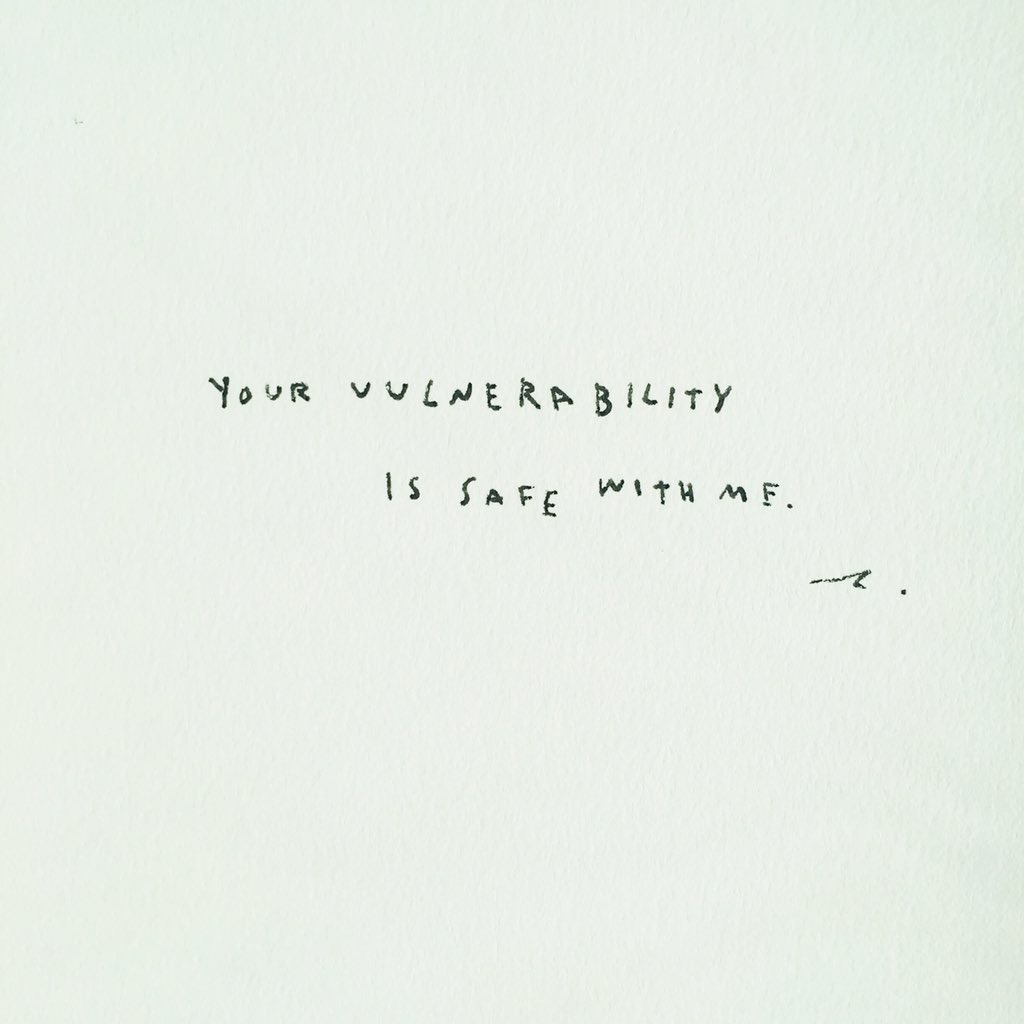 YOUR VULNERABILITY
IS SAFE WITH ME.